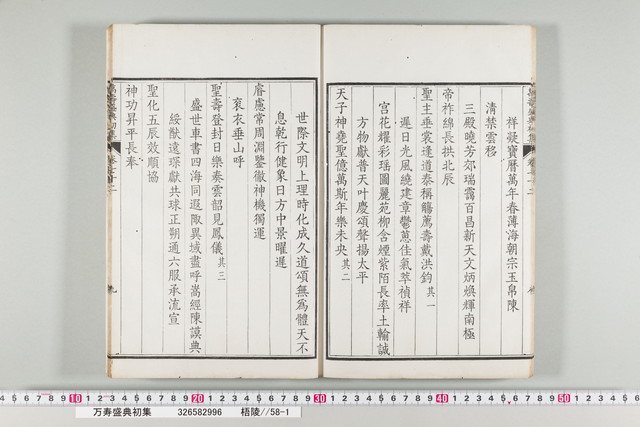 祥凝寶曆萬年春薄海朝宗玉帛陳
淸禁雲移
三殿曉芳郊瑞靄百昌新天文炳煥輝南極
帝祚綿長拱北辰
聖王垂裳逢道泰稱觴萬壽戴洪鈞其一
遲日光風繞建章鬱蔥佳氣萃禎祥
宮花燿彩瑤圖麗苑柳含煙紫陌長率土輸誠
方物獻普天叶慶頌聲揚太平
天子神堯聖億萬斯年樂未央其二
世際文明上理時化成久道頌無為體天不
息乾行健象日方中景曜遲
睿慮常周淵鑒徹神機獨運
袞衣垂山呼
聖壽登封日樂奏雲韶見鳳儀其三
盛世車書四海同遐陬異域盡呼嵩經陳謨典
綏猷遠琛獻共球正朔通六服承流宣
聖化五辰效順協
神功昇平長奉
万寿盛典初集 326582996 梧陵//58-1